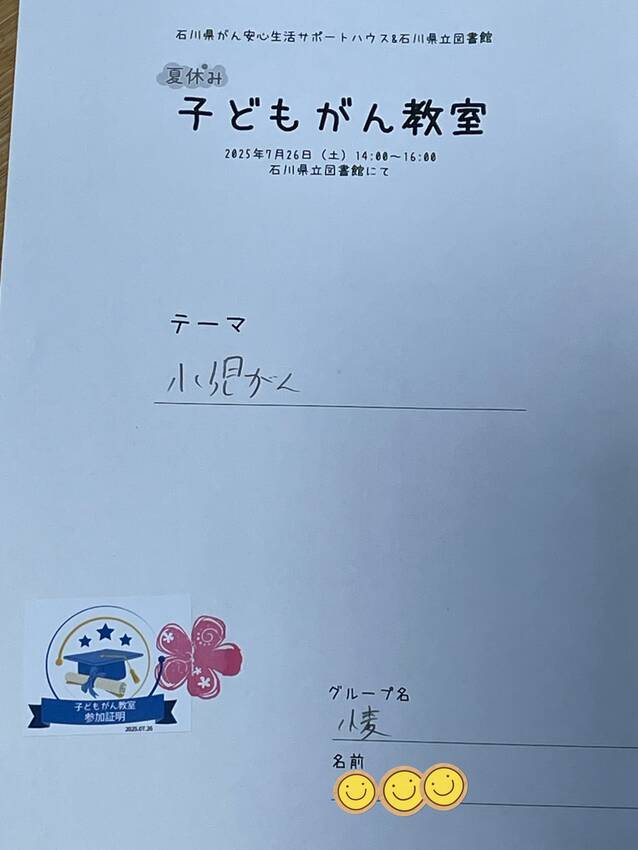 石川県がん安心生活サポートハウス&石川県立図書館
夏休み
子どもがん教室
2025年7月26日（土）14:00～16:00
石川県立図書館にて
テーマ
小児がん
子どもがん教室
参加証明
2025.07.26
グループ名
小麦
名前